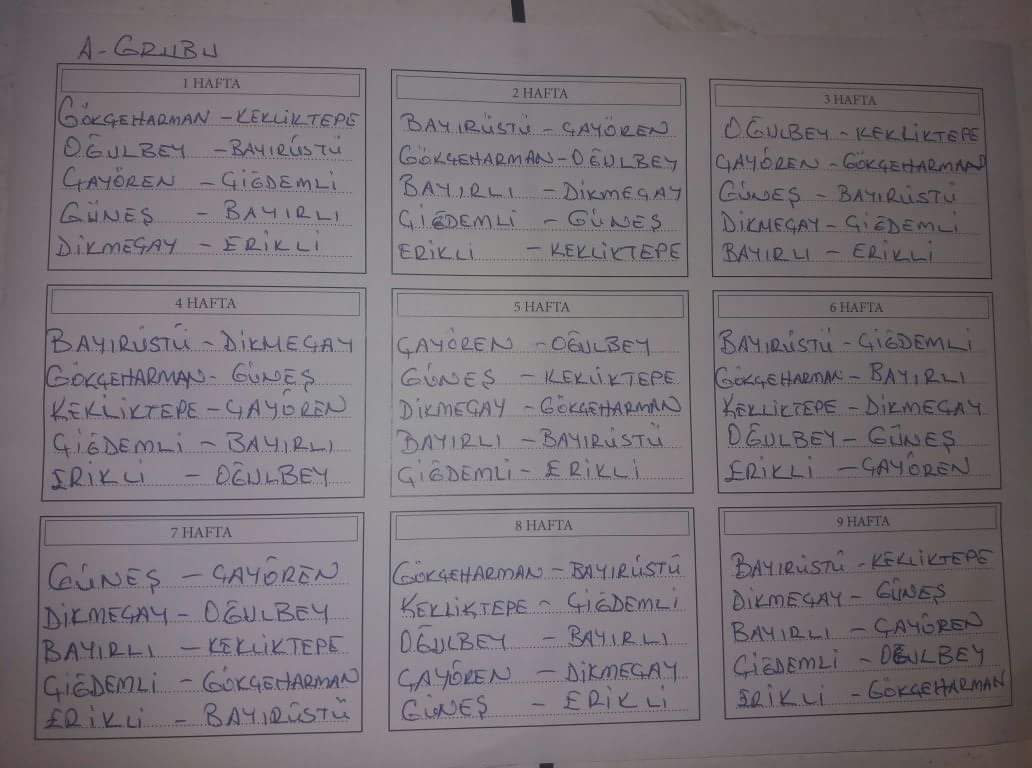 A-GRUBU
1 HAFTA
GÖKÇEHARMAN - KEKLİKTEPE
OĞULBEY - BAYIRÜSTÜ
ÇAYÖREN - ÇİĞDEMLİ
GÜNEŞ - BAYIRLI
DİKMEÇAY - ERİKLİ
2 HAFTA
BAYIRÜSTÜ - ÇAYÖREN
GÖKÇEHARMAN - OĞULBEY
BAYIRLI - DİKMEÇAY
ÇİĞDEMLİ - GÜNEŞ
ERİKLİ - KEKLİKTEPE
3 HAFTA
OĞULBEY - KEKLİKTEPE
ÇAYÖREN - GÖKÇEHARMAN
GÜNEŞ - BAYIRÜSTÜ
DİKMEÇAY - ÇİĞDEMLİ
BAYIRLI - ERİKLİ
4 HAFTA
BAYIRÜSTÜ - DİKMEÇAY
GÖKÇEHARMAN - GÜNEŞ
KEKLİKTEPE - ÇAYÖREN
ÇİĞDEMLİ - BAYIRLI
ERİKLİ - OĞULBEY
5 HAFTA
ÇAYÖREN - OĞULBEY
GÜNEŞ - KEKLİKTEPE
DİKMEÇAY - GÖKÇEHARMAN
BAYIRLI - BAYIRÜSTÜ
ÇİĞDEMLİ - ERİKLİ
6 HAFTA
BAYIRÜSTÜ - ÇİĞDEMLİ
GÖKÇEHARMAN - BAYIRLI
KEKLİKTEPE - DİKMEÇAY
OĞULBEY - GÜNEŞ
ERİKLİ - ÇAYÖREN
7 HAFTA
GÜNEŞ - ÇAYÖREN
DİKMEÇAY - OĞULBEY
BAYIRLI - KEKLİKTEPE
ÇİĞDEMLİ - GÖKÇEHARMAN
ERİKLİ - BAYIRÜSTÜ
8 HAFTA
GÖKÇEHARMAN - BAYIRÜSTÜ
KEKLİKTEPE - ÇİĞDEMLİ
OĞULBEY - BAYIRLI
ÇAYÖREN - DİKMEÇAY
GÜNEŞ - ERİKLİ
9 HAFTA
BAYIRÜSTÜ - KEKLİKTEPE
DİKMEÇAY - GÜNEŞ
BAYIRLI - ÇAYÖREN
ÇİĞDEMLİ - OĞULBEY
ERİKLİ - GÖKÇEHARMAN